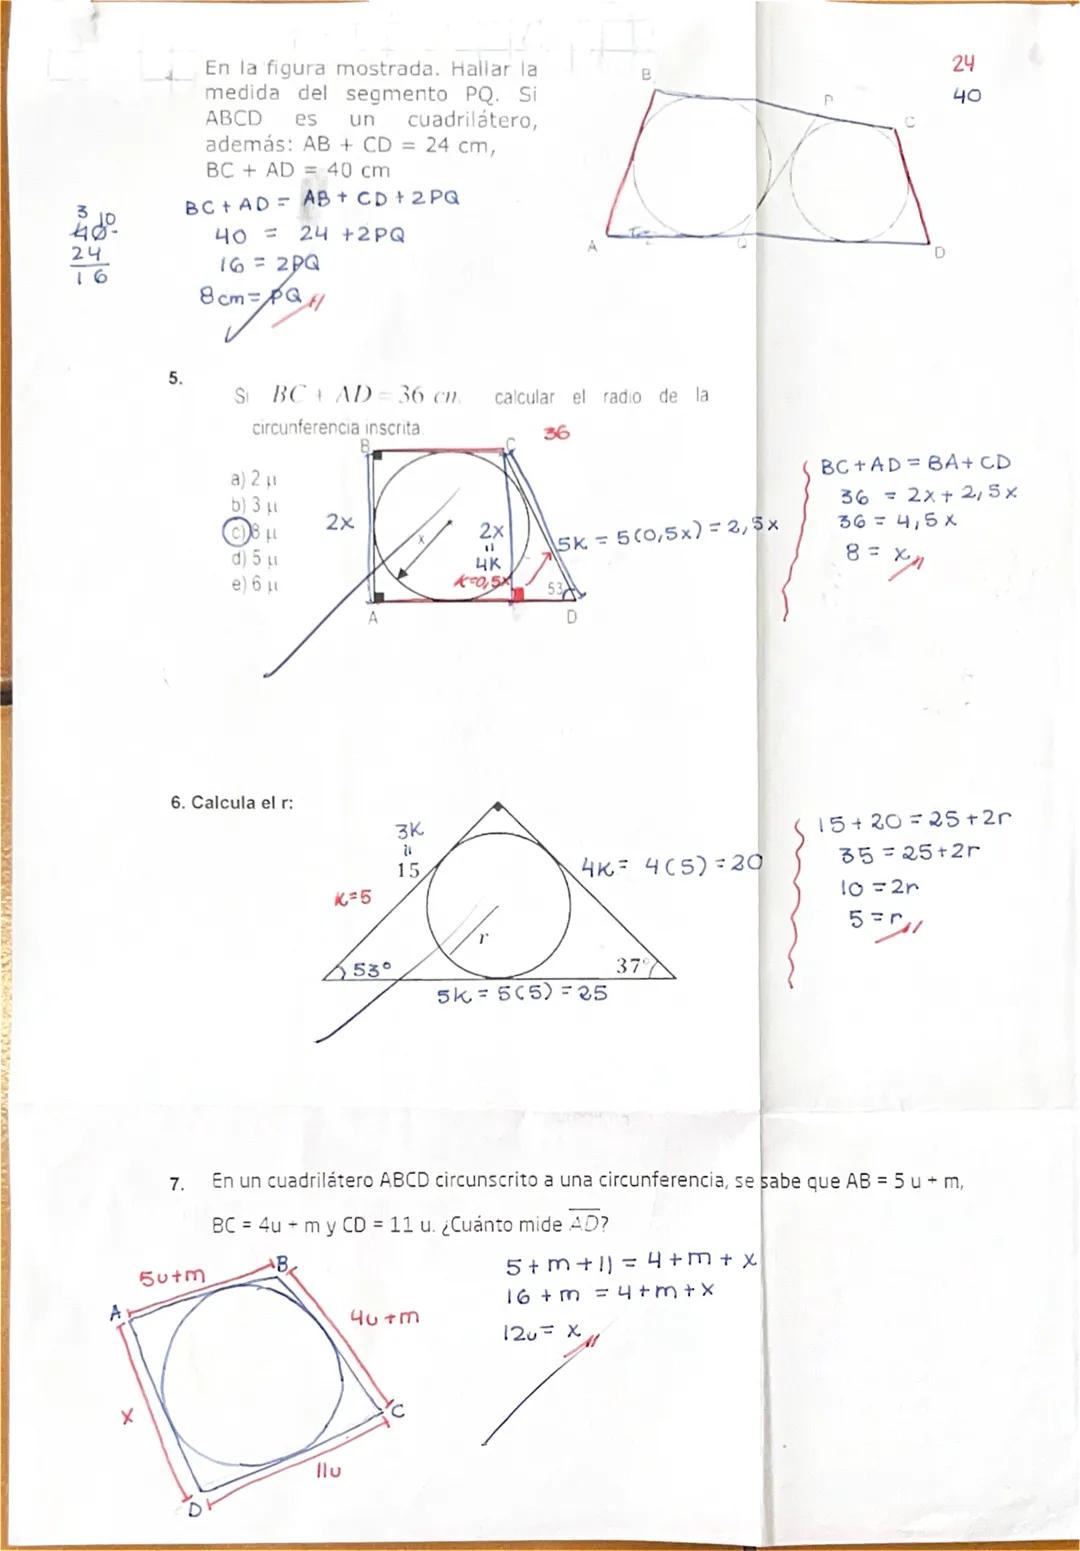 En la figura mostrada. Hallar la
medida del segmento PQ. Si
ABCD es un cuadrilátero,
además: AB + CD = 24 cm,
BC + AD = 40 cm
BC + AD = AB + CD + 2PQ
40 = 24 + 2PQ
16 = 2PQ
8cm = PQ
3 10
40-
24
16
B
P
C
A
Q
D
24
40
5.
Si BC + AD = 36 cm. calcular el radio de la
circunferencia inscrita.
36
a) 2 μ
b) 3 μ
c) 8 μ
d) 5 μ
e) 6 μ
B
C
2x
x
2x
"
4K
K=0,5x
53
A
D
5K = 5(0,5x) = 2,5x
BC + AD = BA + CD
36 = 2x + 2,5x
36 = 4,5x
8 = x
6. Calcula el r:
3K
"
15
K=5
4K = 4(5) = 20
r
53°
37°
5K = 5(5) = 25
15 + 20 = 25 + 2r
35 = 25 + 2r
10 = 2r
5 = r
7. En un cuadrilátero ABCD circunscrito a una circunferencia, se sabe que AB = 5 u + m,
BC = 4u + m y CD = 11 u. ¿Cuánto mide AD?
5u+m
B
A
4u+m
x
C
11u
D
5 + m + 11 = 4 + m + x
16 + m = 4 + m + x
12u = x